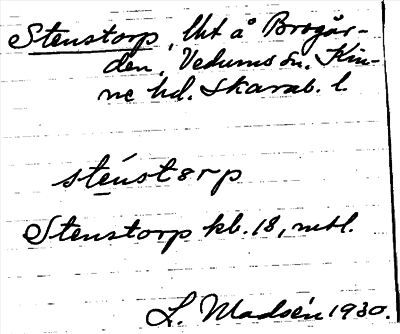 Stenstorp, lht å Brogår-
den, Vedums sn. Kin-
ne hd. Skarab. l.
sténstɘrp
Stenstorp kb. 18, mtl.
L. Madsén 1930.